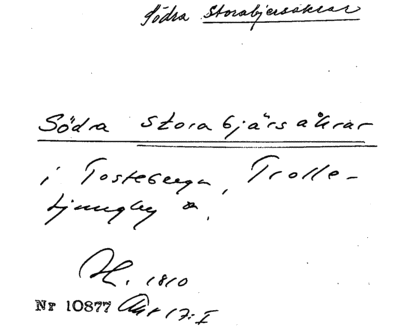 Södra Storabjersåkrar
Södra Storabjärsåkrar
i Tosteberga, Trolle-
Ljungby
H. 1810
Nr 10877 Akt 17:I